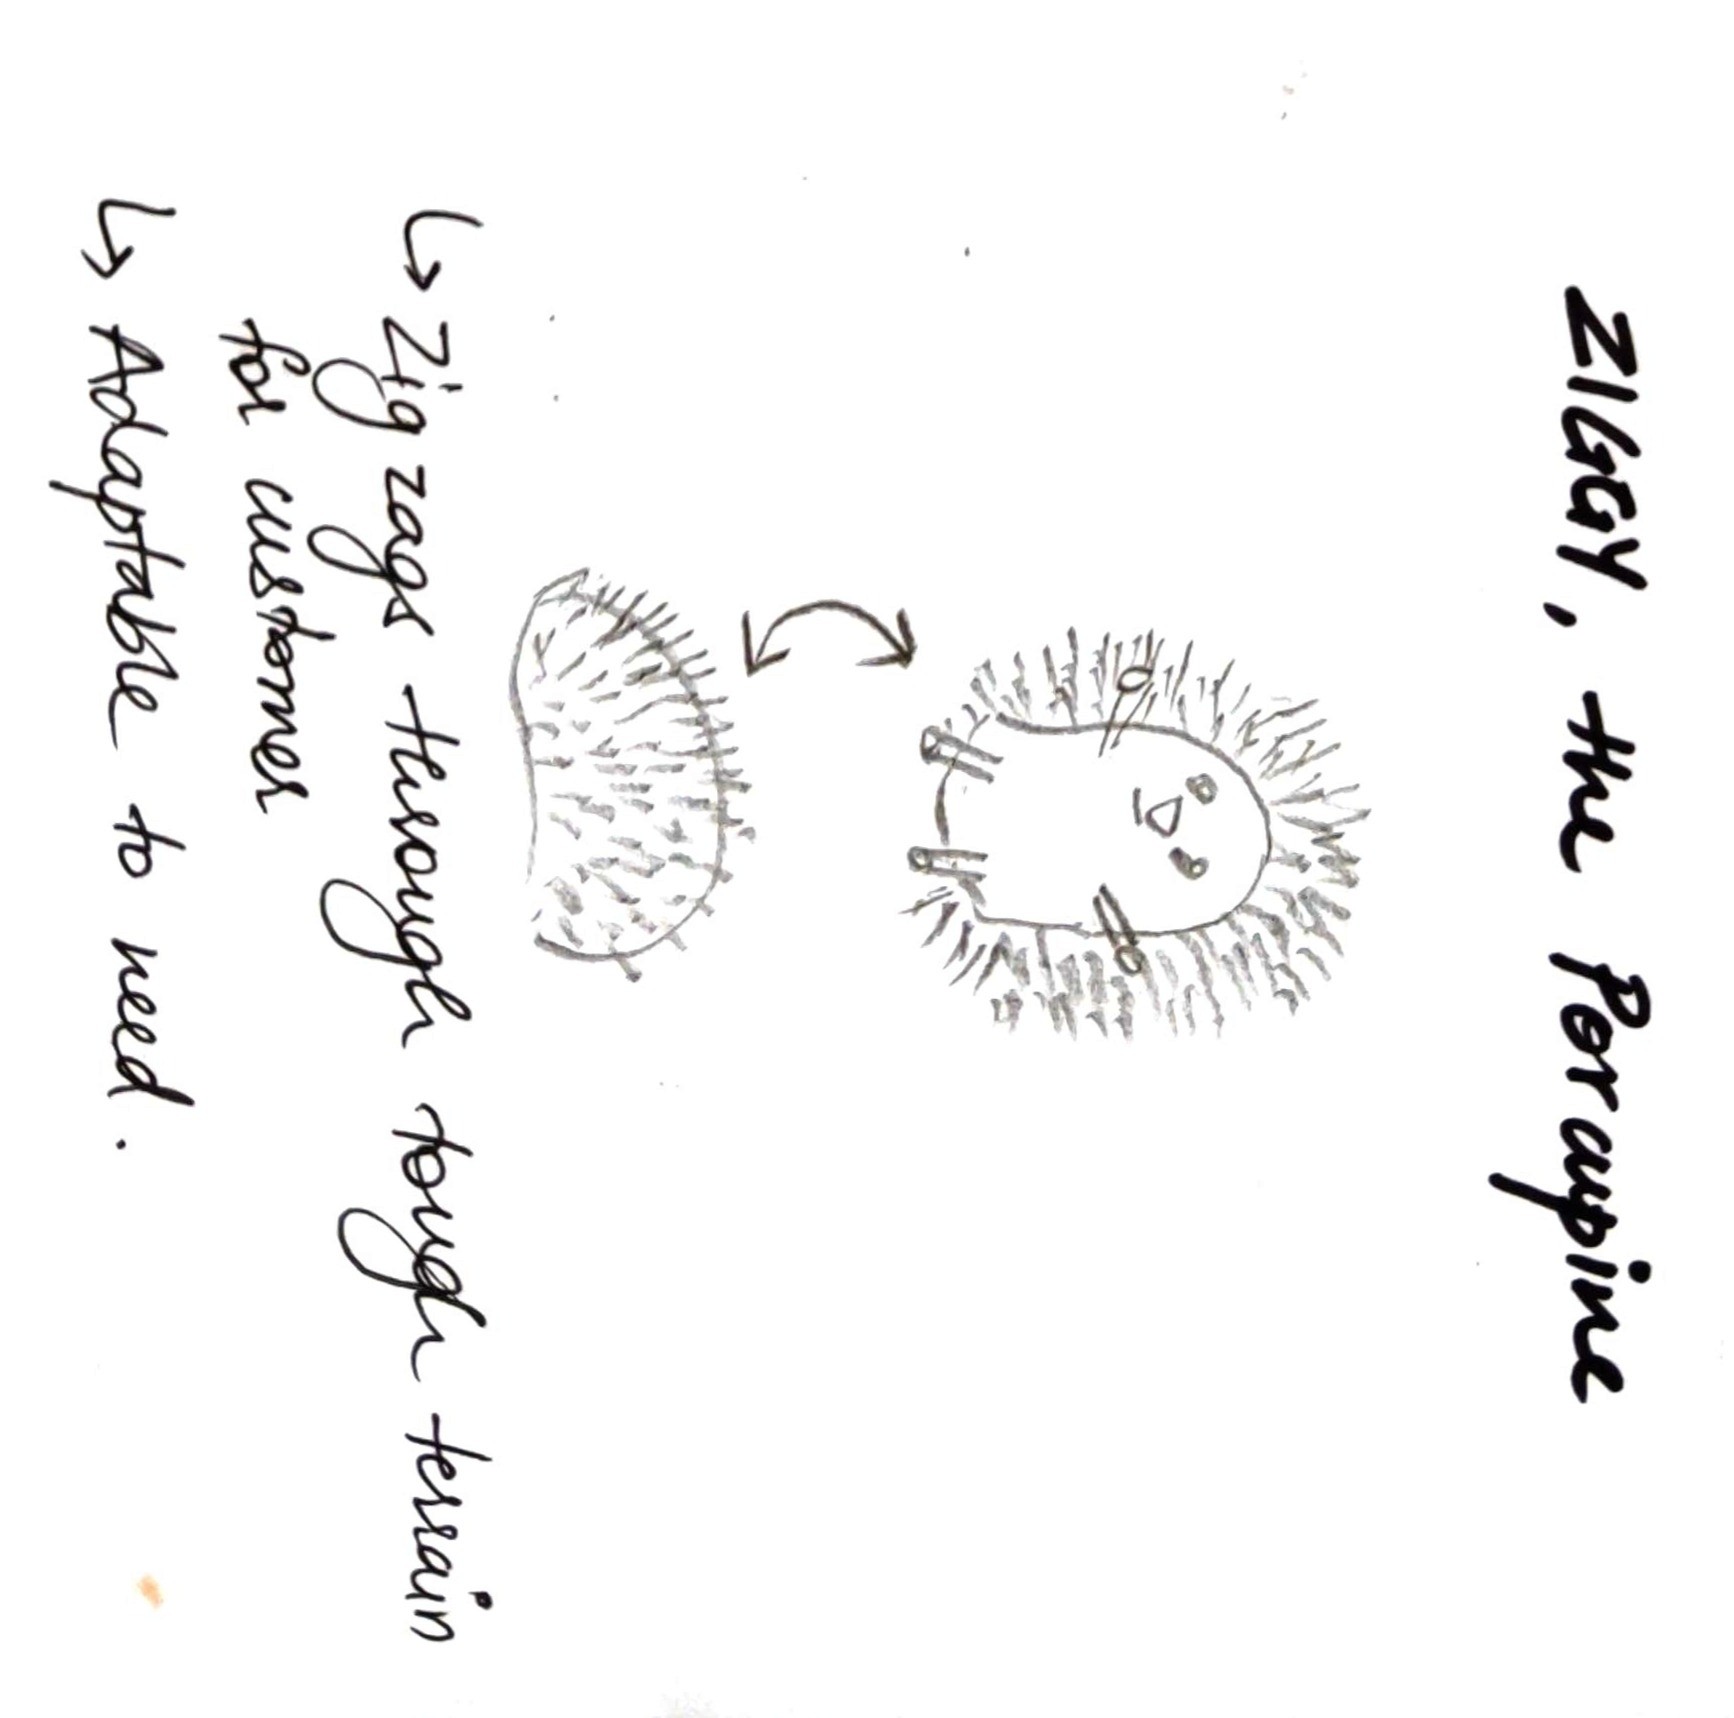 ZIGGY, the Porcupine
↳ Zig zags through tough terrain
for customer
↳ Adaptable to need.